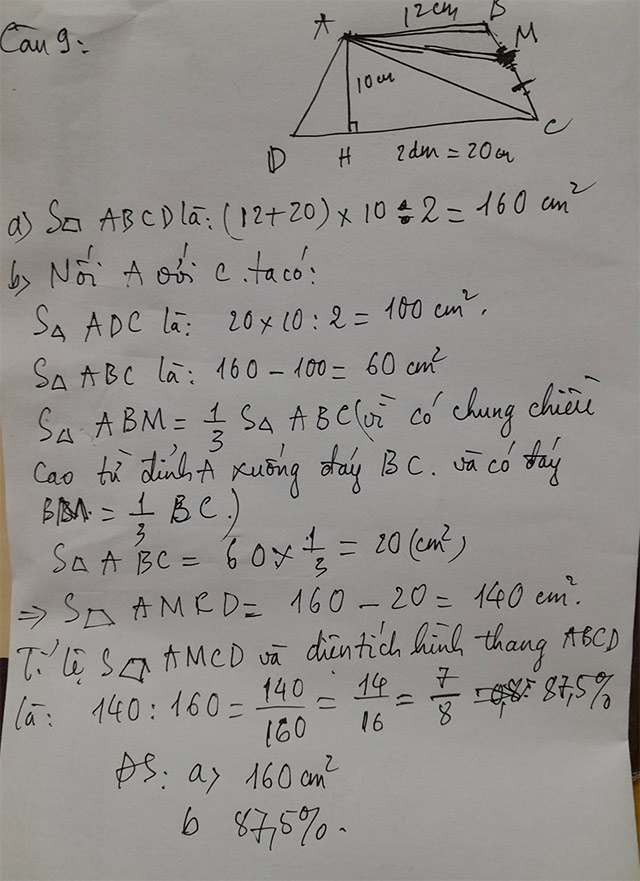 Câu 9:
A
12cm
B
M
10cm
D
H
2dm = 20cm
C
a) S▱ ABCD là: (12+20) × 10 : 2 = 160 cm²
b) Nối A với C. ta có:
S△ ADC là: 20 × 10 : 2 = 100 cm².
S△ ABC là: 160 - 100 = 60 cm²
S△ ABM = 1/3 S△ ABC (vì có chung chiều
cao từ đỉnh A xuống đáy BC. và có đáy
BM = 1/3 BC.)
S△ ABC = 60 × 1/3 = 20 (cm²)
⇒ S▱ AMCD = 160 - 20 = 140 cm².
Tỉ lệ S▱ AMCD và diện tích hình thang ABCD
là: 140 : 160 = 140/160 = 14/16 = 7/8 = 87,5%
ĐS: a) 160 cm²
b 87,5%.